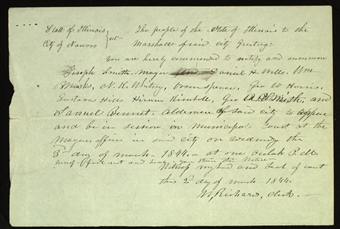 State of Illinois The people of the State of Illinois to the
City of Nauvoo Marshall of said city Greeting:
You are hereby commanded to notify and summon
Joseph Smith, Mayor Daniel H. Wells. Wm
Marks, N. K. Whitney, Orson Spencer, Geo W Harris,
Gustavus Hills Hiram Kimball, Geo A. Smith, and
Samuel Bennett. Aldermen of said city to appear
and be in session on Municipal Court at the
Mayors office in said city on the
3d day of March 1844. at one oclock P.M.
fail not and
Witness my hand and seal of court
this 2d day of March 1844
W. Richards, Clerk.